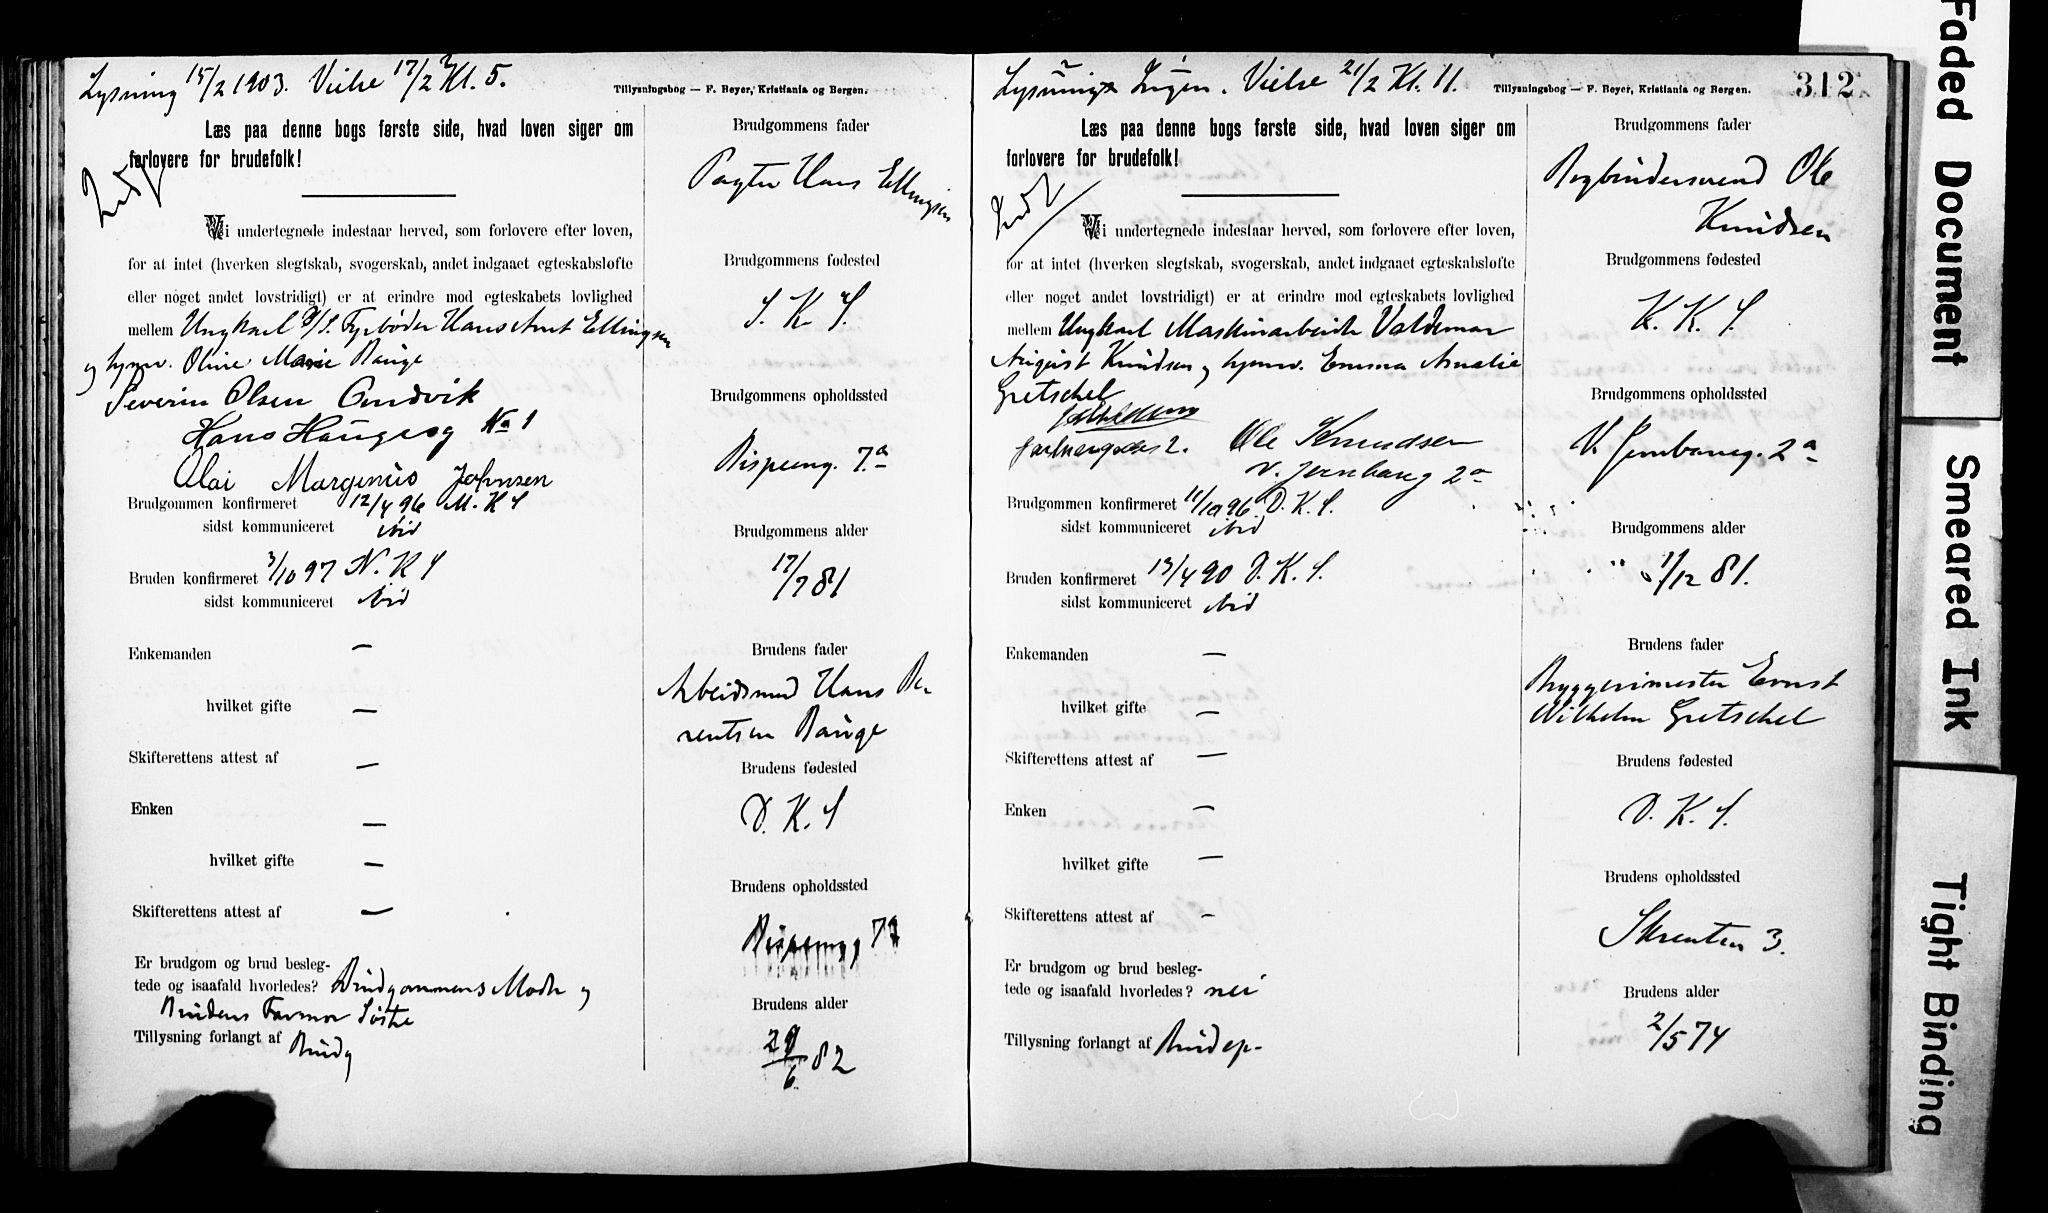 Lysning 15/2 1903. Vielse 17/2 Kl. 5.
Tillysningsbog — F. Beyer, Kristiania og Bergen.
Læs paa denne bogs første side, hvad loven siger om
forlovere for brudefolk!
Vi undertegnede indestaar herved, som forlovere efter loven,
for at intet (hverken slegtskab, svogerskab, andet indgaaet egteskabsløfte
eller noget andet lovstridigt) er at erindre mod egteskabets lovlighed
mellem Ungkarl D/S. Fyrbøder Hans Arnt Ellingsen
og Oline Marie Bauge
Severin Olsen Omdvik
Hans Haugesg No 1
Olai Marginus Johnsen
Brudgommen konfirmeret 12/4 96 M. K S
sidst kommuniceret ibid
Bruden konfirmeret 3/10 97 N. K S
sidst kommuniceret ibid
Enkemanden —
hvilket gifte —
Skifterettens attest af —
Enken —
hvilket gifte —
Skifterettens attest af —
Er brudgom og brud besleg-
tede og isaafald hvorledes? Brudgommens Moder og
Brudens Farmor Søstre
Tillysning forlangt af Brudg
Brudgommens fader
Pagter Hans Ellingsen
Brudgommens fødested
S. K. S.
Brudgommens opholdssted
Bispeeng. 7a
Brudgommens alder
17/7 81
Brudens fader
Arbeidsmand Hans Be-
rentsen Bauge
Brudens fødested
D. K. S
Brudens opholdssted
Bispeeng. 7a
Brudens alder
29/6 82
Lysning 2 Ingen. Vielse 21/2 Kl. 11.
Tillysningsbog — F. Beyer, Kristiania og Bergen.
312
Læs paa denne bogs første side, hvad loven siger om
forlovere for brudefolk!
Vi undertegnede indestaar herved, som forlovere efter loven,
for at intet (hverken slegtskab, svogerskab, andet indgaaet egteskabsløfte
eller noget andet lovstridigt) er at erindre mod egteskabets lovlighed
mellem Ungkarl Maskinarbeider Valdemar
August Knudsen og Emma Amalie
Gretschel
Ole Knudsen
V. Jernbaneg 2a
Brudgommen konfirmeret 11/10 96 D. K. S.
sidst kommuniceret ibid
Bruden konfirmeret 13/4 90 D. K. S.
sidst kommuniceret ibid
Enkemanden —
hvilket gifte —
Skifterettens attest af —
Enken —
hvilket gifte —
Skifterettens attest af —
Er brudgom og brud besleg-
tede og isaafald hvorledes? nei
Tillysning forlangt af Brudep-
Brudgommens fader
Bogbindersvend Ole
Knudsen
Brudgommens fødested
K. K. S.
Brudgommens opholdssted
V. Jernbaneg. 2a
Brudgommens alder
11/12 81.
Brudens fader
Bryggerimester Ernst
Wilhelm Gretschel
Brudens fødested
D. K. S.
Brudens opholdssted
Skrenten 3.
Brudens alder
2/5 74
Faded Document
Smeared Ink
Tight Binding